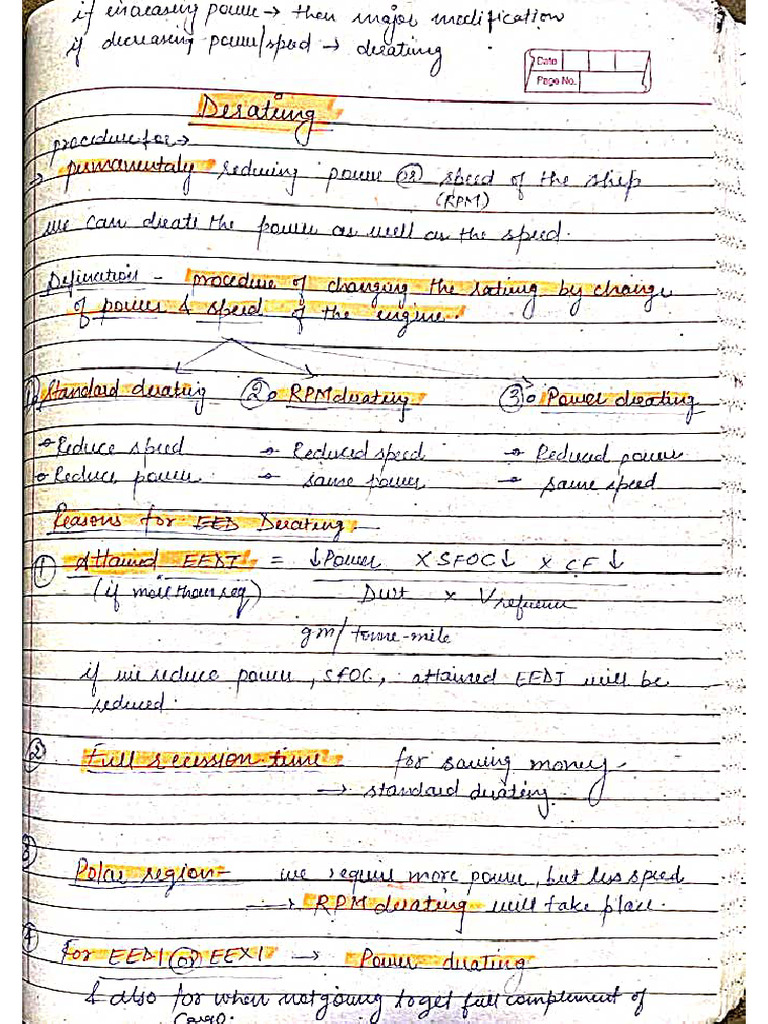 if increasing power → then major modification
if decreasing power/speed → derating
Date
Page No.
Derating
procedure for →
→ permanentaly reducing power (or) speed of the ship
(RPM)
we can dreate the power as well as the speed.
Defination - procedure of changing the rating by change
of power & speed of the engine.
① Standard derating ② RPM derating ③ Power derating
→ Reduce speed → Reduced speed → Reduced power
→ Reduce power → same power → same speed
Reasons for EED Derating -
① Attained EEDI = ↓Power X SFOC↓ x CF ↓
(if more than req) Dwt x Vreference
gm/tonne-mile
if we reduce power, SFOC, attained EEDI will be
reduced.
② Full recession time - for saving money
→ standard derating
③ Polar region - we require more power, but less speed
→ RPM derating will take place.
④ For EEDI (or) EEXI → Power derating
& also for when not going to get full complement of
Cargo.